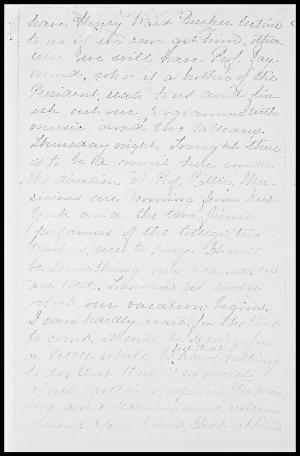 have Henry Ward Beecher lecture
to us if we can get him, other-
wise we will have Prof. Ray-
mond, who is a brother of the
President, read to us and fin-
ish out our programme with
music and two tableaus.
Thursday night. Tonight there
is to be a concert here under
the direction of Prof. Ritter. Mu-
sicians are coming from New
York and the two finest
performers of the College two
are to play. It will
be something very grand, we
are told. Tomorrow at twelve
o'clock our vacation begins.
I can hardly wait for the time
to come, it will be so nice for
a little while to feel that I have nothing
to do, that there is no need
of getting up in the morn-
ing and
that at home